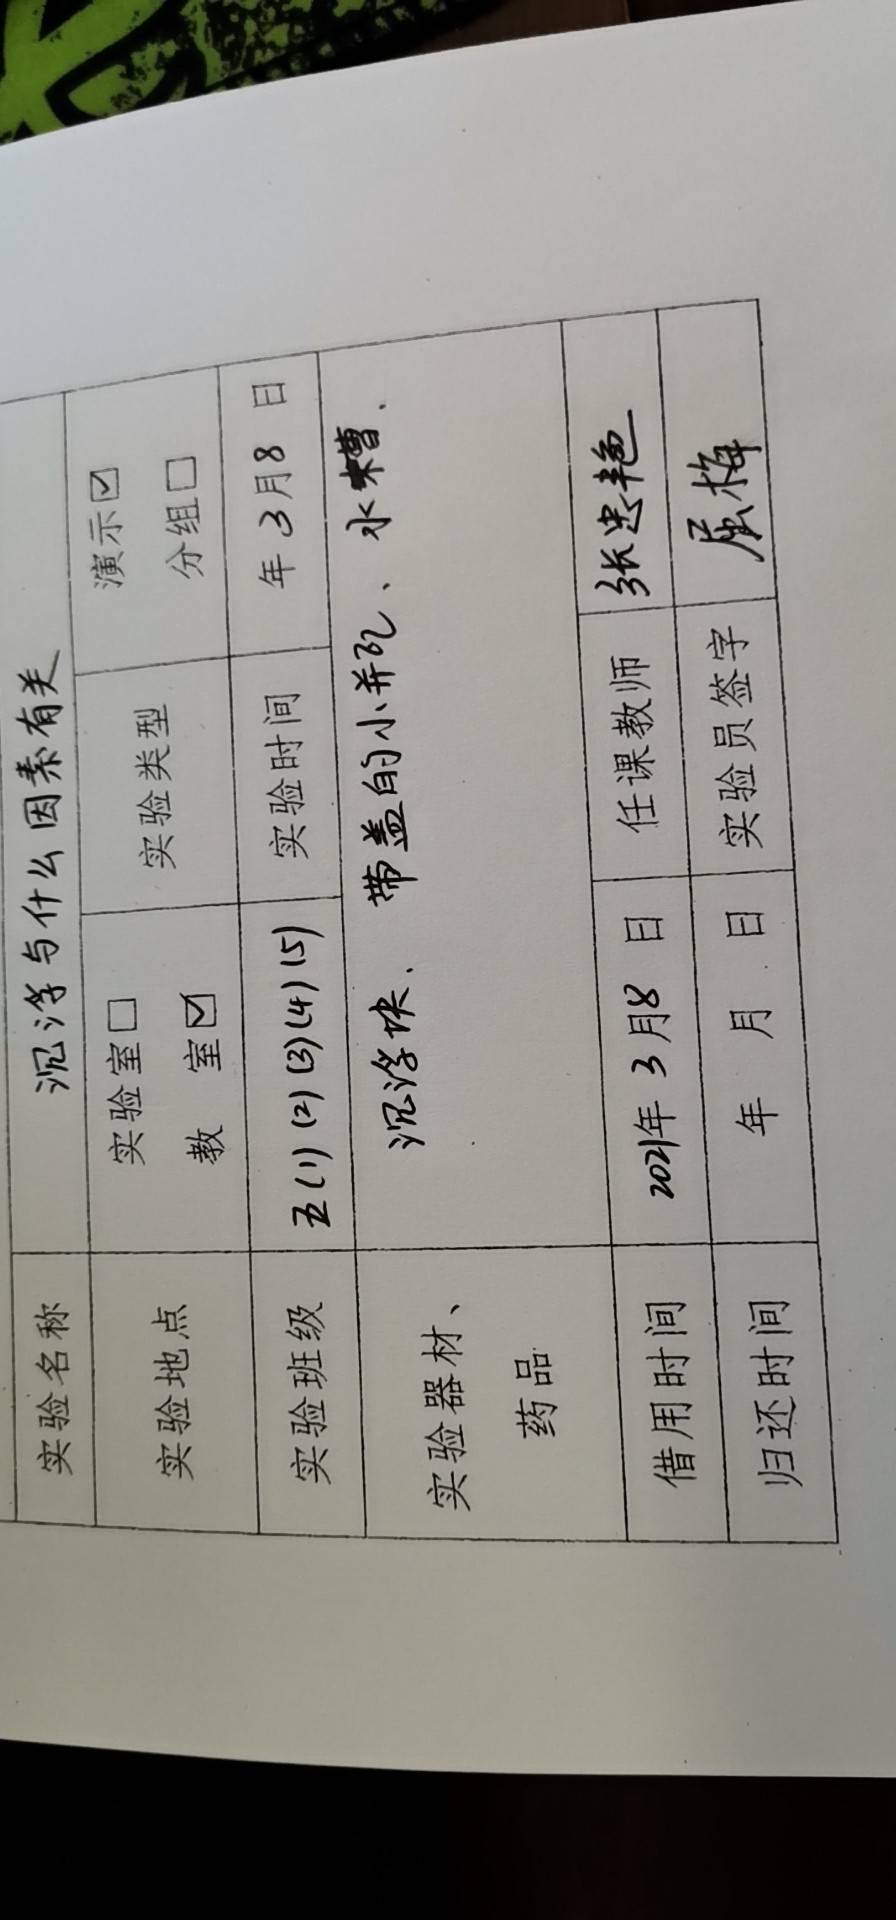 实验名称 沉浮与什么因素有关
实验地点 实验室□ 实验类型 演示☑
教 室☑ 分组□
实验班级 五(1)(2)(3)(4)(5) 实验时间 年3月8日
实验器材、 沉浮块、带盖的小并瓦、水槽、
药品
借用时间 2021年3月8日 任课教师 张忠艳
归还时间 年 月 日 实验员签字 屈梅